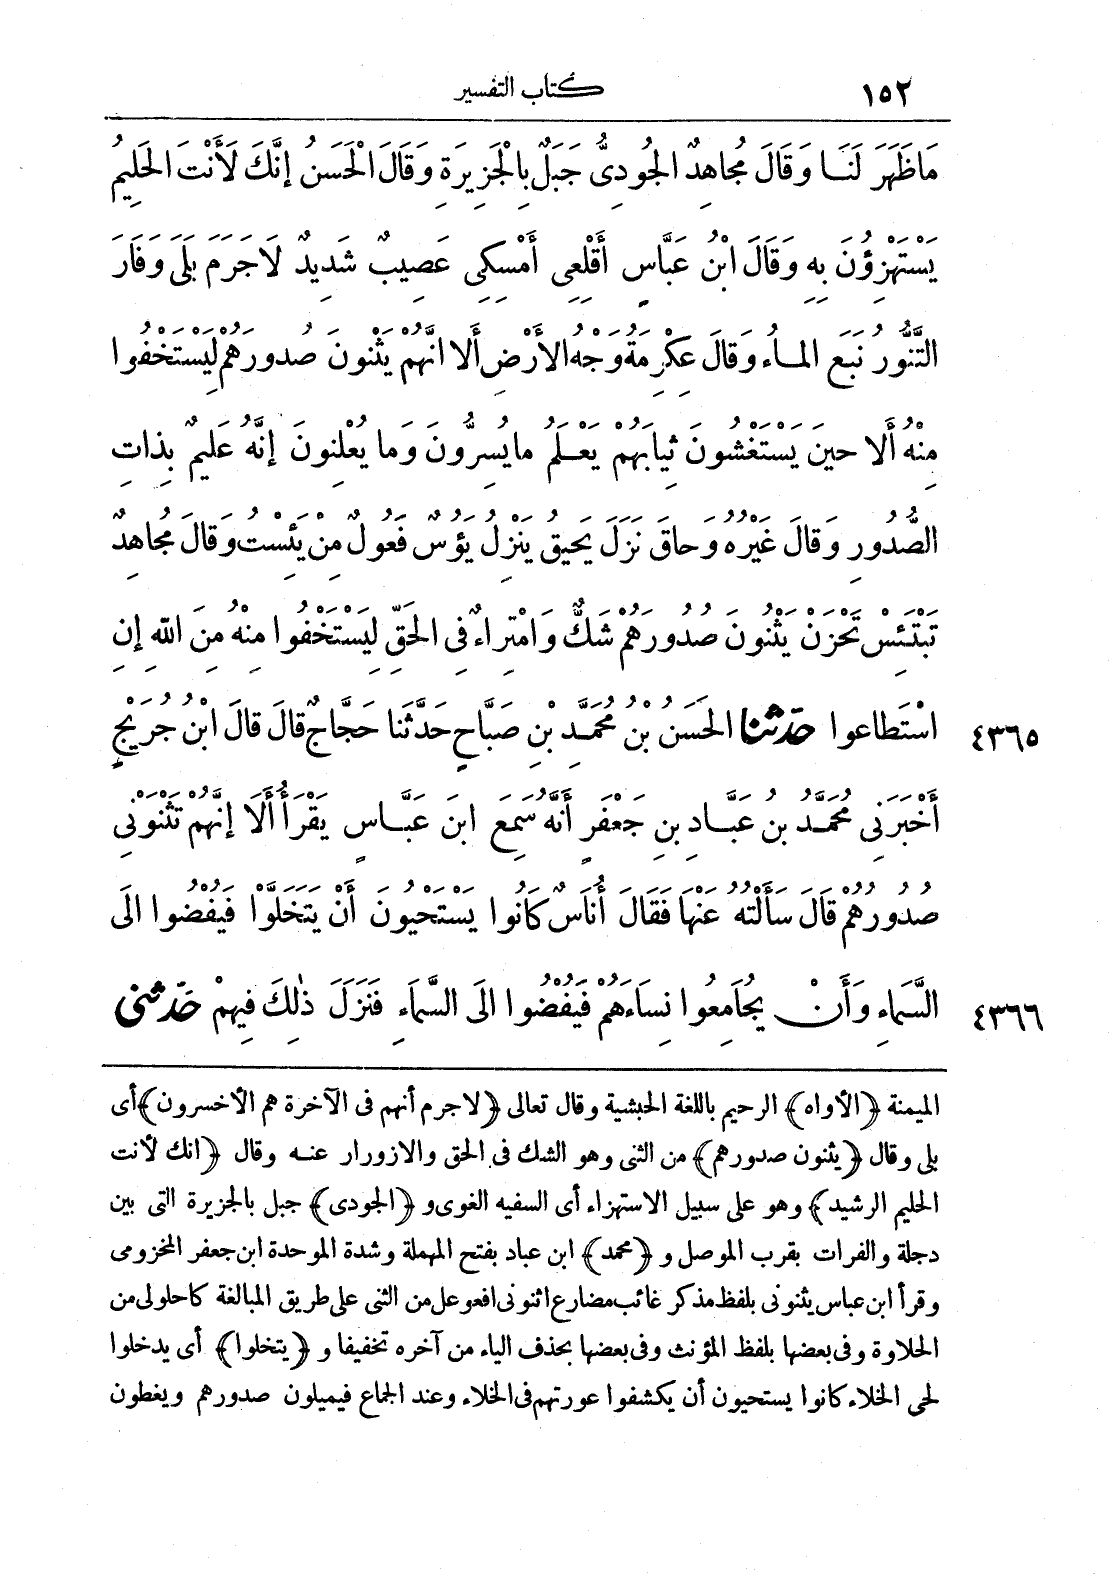 ١٥٢ كتاب التفسير
مَا ظَهَرَ لَنَا وَقَالَ مُجَاهِدٌ الجُودِىُّ جَبَلٌ بِالْجَزِيرَةِ وَقَالَ الْحَسَنُ إِنَّكَ لَأَنْتَ الحَلِيمُ
يَسْتَهْزِؤُنَ بِهِ وَقَالَ ابْنُ عَبَّاسٍ أَقْلِعِى أَمْسِكِى عَصِيبٌ شَدِيدٌ لَا جَرَمَ بَلَى وَفَارَ
التَّنُّورُ نَبَعَ المـاءُ وَقَالَ عِكْرِمَةُ وَجْهُ الأَرْضِ أَلا انَّهُمْ يَثْنُونَ صُدُورَهُمْ لِيَسْتَخْفُوا
مِنْهُ أَلَا حِينَ يَسْتَغْشُونَ ثِيَابَهُمْ يَعْـلَمُ مايُسِرُّونَ وَما يُعْلِنُونَ إِنَّهُ عَلِيمٌ بِذاتِ
الصُّدُورِ وَقالَ غَيْرُهُ وَحاقَ نَزَلَ يَحِيقُ يَنْزِلُ يَؤُسٌ فَعُولٌ مِنْ يَئِسْتُ وَقَالَ مُجاهِدٌ
تَبْتَئِسْ تَحْزَنْ يَثْنُونَ صُدُورَهُمْ شَكٌّ وَامْتِراءٌ فِى الحَقِّ لِيَسْتَخْفُوا مِنْهُ مِنَ اللهِ إِنِ
اسْتَطاعوا حدّثنا الحَسَنُ بْنُ مُحَمَّدِ بْنِ صَبَّاحٍ حَدَّثَنا حَجَّاجٌ قالَ قالَ ابْنُ جُرَيْجٍ ٤٣٦٥
أَخْبَرَنِى مُحَمَّـدُ بن عَبَّـادِ بنِ جَعْفَرٍ أَنَّهُ سَمِعَ ابنَ عَبَّـاسٍ يَقْرَأُ أَلَا إِنَّهُمْ تَثْنَوْنِى
صُدُورُهُمْ قَالَ سَأَلْتُهُ عَنْهَا فَقَالَ أُنَاسٌ كَانُوا يَسْتَحْيُونَ أَنْ يَتَخَلَّوْا فَيُفْضُوا الَى
السَّمَاءِ وَأَنْ يُجَامِعُوا نِسَاءَهُمْ فَيُفْضُوا الَى السَّمَاءِ فَنَزَلَ ذٰلِكَ فِيهِمْ حدّثنى ٤٣٦٦
الميمنة ﴿الأواه﴾ الرحيم باللغة الحبشية وقال تعالى ﴿لاجرم أنهم فى الآخرة هم الأخسرون﴾ أى
بلى وقال ﴿يثنون صدورهم﴾ من الثنى وهو الشك فى الحق والازورار عنـه وقال ﴿انك لأنت
الحليم الرشيد﴾ وهو على سبيل الاستهزاء أى السفيه الغوى و ﴿الجودى﴾ جبل بالجزيرة التى بين
دجلة والفرات بقرب الموصل و ﴿محمد﴾ ابن عباد بفتح المهملة وشدة الموحدة ابن جعفر المخزومى
وقرأ ابن عباس يثنونى بلفظ مذكر غائب مضارع اثنونى افعوعل من الثنى على طريق المبالغة كاحلولى من
الحلاوة وفى بعضها بلفظ المؤنث وفى بعضها بحذف الياء من آخره تخفيفا و ﴿يتخلوا﴾ أى يدخلوا
لحى الخلاء كانوا يستحيون أن يكشفوا عورتهم فى الخلاء وعند الجماع فيميلون صدورهم ويغطون